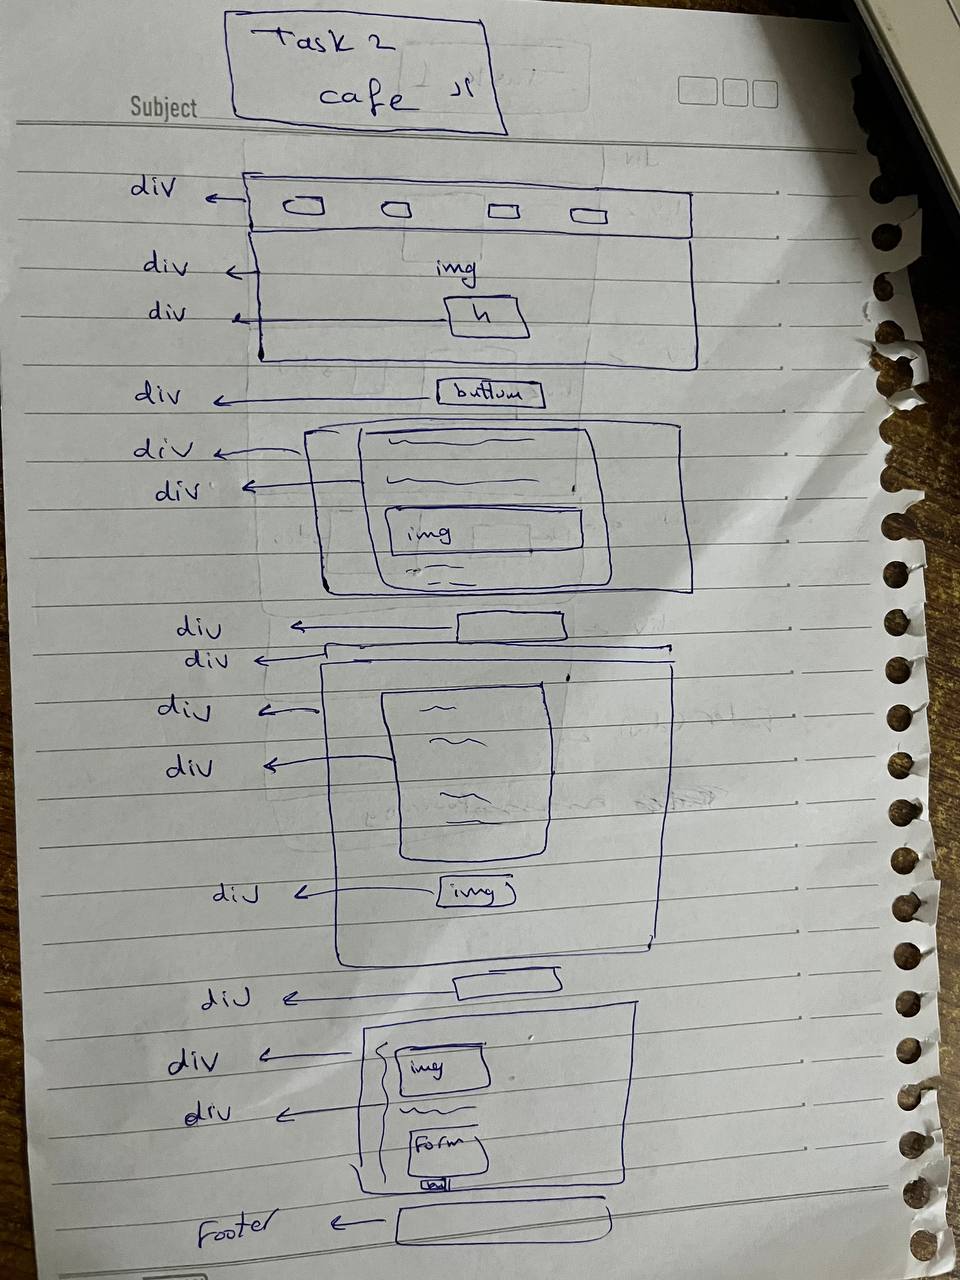 Task 2
cafe
Subject
div
div
img
div
h
div
buttum
div
div
img
div
div
div
div
div
img
div
div
img
div
Form
Footer